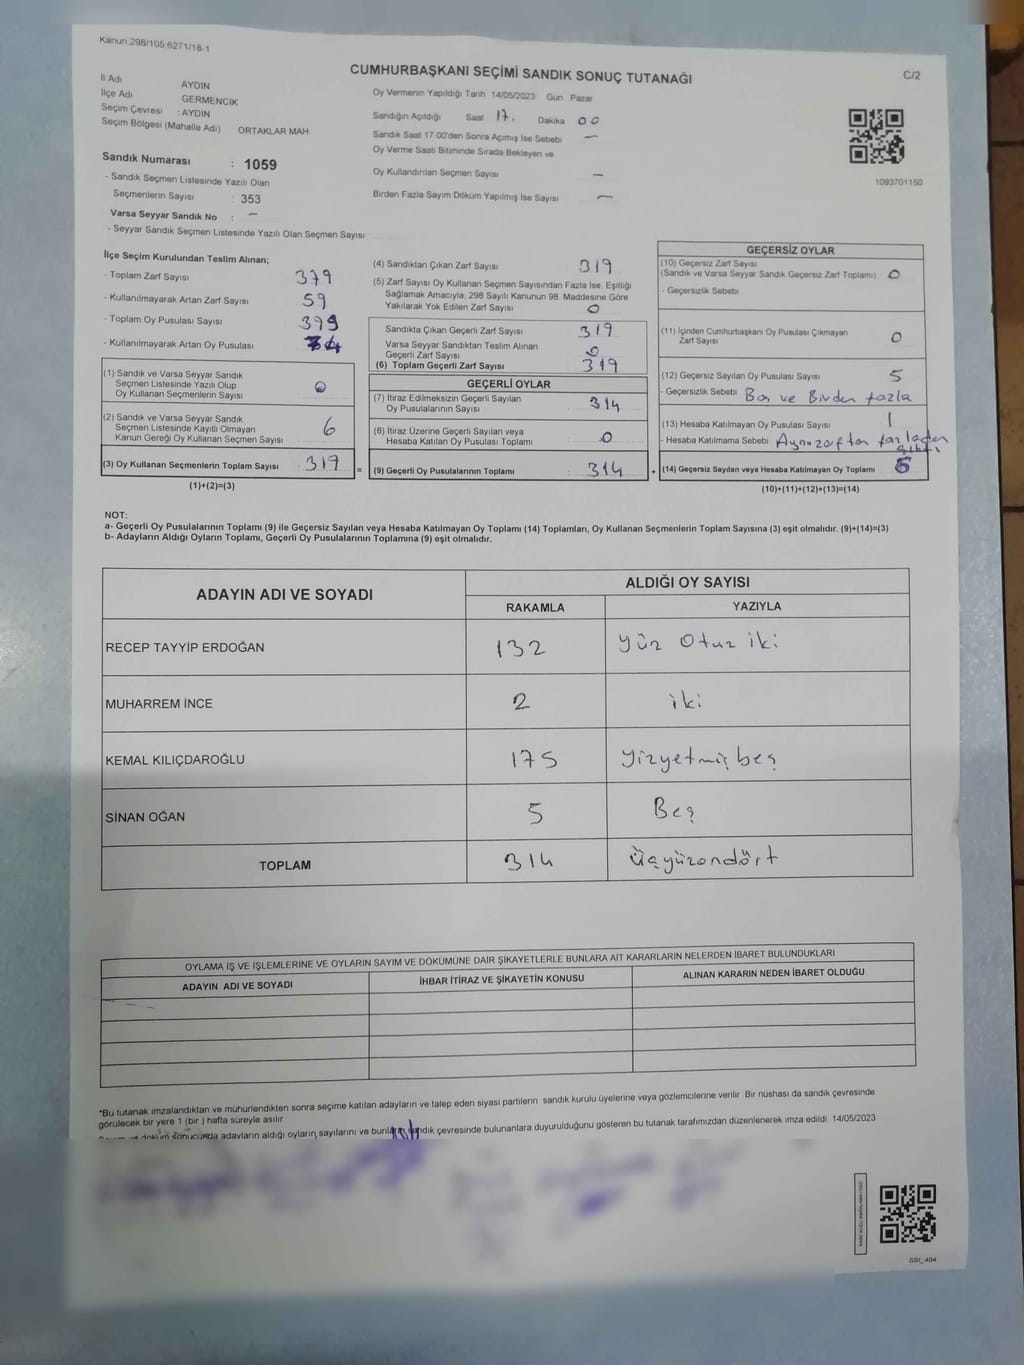 Kanun;298/105,6271/18-1
CUMHURBAŞKANI SEÇİMİ SANDIK SONUÇ TUTANAĞI
C/2
İl Adı AYDIN
İlçe Adı GERMENCİK
Seçim Çevresi : AYDIN
Seçim Bölgesi (Mahalle Adı) ORTAKLAR MAH
Sandık Numarası : 1059
- Sandık Seçmen Listesinde Yazılı Olan
Seçmenlerin Sayısı : 353
Varsa Seyyar Sandık No : –
- Seyyar Sandık Seçmen Listesinde Yazılı Olan Seçmen Sayısı
Oy Vermenin Yapıldığı Tarih 14/05/2023 Gün Pazar
Sandığın Açıldığı Saat 17. Dakika 00
Sandık Saat 17 00'den Sonra Açımış İse Sebebi –
Oy Verme Saati Bitiminde Sırada Bekleyen ve
Oy Kullandırılan Seçmen Sayısı –
Birden Fazla Sayım Döküm Yapılmış İse Sayısı –
1093701150
İlçe Seçim Kurulundan Teslim Alınan;
- Toplam Zarf Sayısı 379
- Kullanılmayarak Artan Zarf Sayısı 59
- Toplam Oy Pusulası Sayısı 399
- Kullanılmayarak Artan Oy Pusulası
(1) Sandık ve Varsa Seyyar Sandık
Seçmen Listesinde Yazılı Olup
Oy Kullanan Seçmenlerin Sayısı
(2) Sandık ve Varsa Seyyar Sandık
Seçmen Listesinde Kayıtlı Olmayan
Kanun Gereği Oy Kullanan Seçmen Sayısı 6
(3) Oy Kullanan Seçmenlerin Toplam Sayısı : 319
(1)+(2)=(3)
(4) Sandıktan Çıkan Zarf Sayısı 319
(5) Zarf Sayısı Oy Kullanan Seçmen Sayısından Fazla İse, Eşitliği
Sağlamak Amacıyla, 298 Sayılı Kanunun 98. Maddesine Göre
Yakılarak Yok Edilen Zarf Sayısı 0
Sandıkta Çıkan Geçerli Zarf Sayısı 319
Varsa Seyyar Sandıktan Teslim Alınan
Geçerli Zarf Sayısı 0
(6) Toplam Geçerli Zarf Sayısı 319
GEÇERLİ OYLAR
(7) İtiraz Edilmeksizin Geçerli Sayılan
Oy Pusulalarının Sayısı 314
(8) İtiraz Üzerine Geçerli Sayılan veya
Hesaba Katılan Oy Pusulası Toplamı 0
= (9) Geçerli Oy Pusulalarının Toplamı 314
GEÇERSİZ OYLAR
(10) Geçersiz Zarf Sayısı
(Sandık ve Varsa Seyyar Sandık Geçersiz Zarf Toplamı) 0
- Geçersizlik Sebebi
(11) İçinden Cumhurbaşkanı Oy Pusulası Çıkmayan
Zarf Sayısı 0
(12) Geçersiz Sayılan Oy Pusulası Sayısı 5
- Geçersizlik Sebebi Boş ve Birden fazla
(13) Hesaba Katılmayan Oy Pusulası Sayısı 1
- Hesaba Katılmama Sebebi Aynı zarftan fazladan
çıktı
+ (14) Geçersiz Sayılan veya Hesaba Katılmayan Oy Toplamı
(10)+(11)+(12)+(13)=(14)
NOT:
a- Geçerli Oy Pusulalarının Toplamı (9) ile Geçersiz Sayılan veya Hesaba Katılmayan Oy Toplamı (14) Toplamları, Oy Kullanan Seçmenlerin Toplam Sayısına (3) eşit olmalıdır. (9)+(14)=(3)
b- Adayların Aldığı Oyların Toplamı, Geçerli Oy Pusulalarının Toplamına (9) eşit olmalıdır.
ADAYIN ADI VE SOYADI
ALDIĞI OY SAYISI
RAKAMLA YAZIYLA
RECEP TAYYİP ERDOĞAN 132 Yüz Otuz iki
MUHARREM İNCE 2 iki
KEMAL KILIÇDAROĞLU 175 Yüzyetmişbeş
SİNAN OĞAN 5 Beş
TOPLAM 314 Üçyüzondört
OYLAMA İŞ VE İŞLEMLERİNE VE OYLARIN SAYIM VE DÖKÜMÜNE DAİR ŞİKAYETLERLE BUNLARA AİT KARARLARIN NELERDEN İBARET BULUNDUKLARI
ADAYIN ADI VE SOYADI İHBAR İTİRAZ VE ŞİKAYETİN KONUSU ALINAN KARARIN NEDEN İBARET OLDUĞU
*Bu tutanak imzalandıktan ve mühürlendikten sonra seçime katılan adayların ve talep eden siyasi partilerin sandık kurulu üyelerine veya gözlemcilerine verilir Bir nüshası da sandık çevresinde
görülecek bir yere 1 (bir ) hafta süreyle asılır
döküm sonucunda adayların aldığı oyların sayılarını ve bunların sandık çevresinde bulunanlara duyurulduğunu gösteren bu tutanak tarafımızdan düzenlenerek imza edildi 14/05/2023
SSI_404